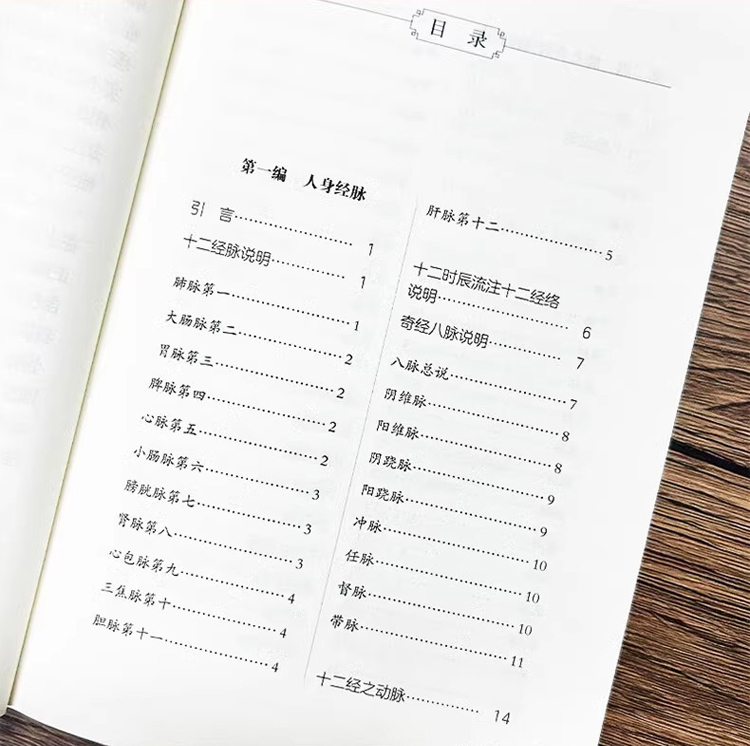 目 录
第一编 人身经脉
引 言……………… 1
十二经脉说明……………… 1
肺脉第一……………… 1
大肠脉第二……………… 2
胃脉第三……………… 2
脾脉第四……………… 2
心脉第五……………… 2
小肠脉第六……………… 3
膀胱脉第七……………… 3
肾脉第八……………… 3
心包脉第九……………… 4
三焦脉第十……………… 4
胆脉第十一……………… 4
肝脉第十二……………… 5
十二时辰流注十二经络
说明……………… 6
奇经八脉说明……………… 7
八脉总说……………… 7
阴维脉……………… 8
阳维脉……………… 8
阴跷脉……………… 9
阳跷脉……………… 9
冲脉……………… 10
任脉……………… 10
督脉……………… 10
带脉……………… 11
十二经之动脉……………… 14